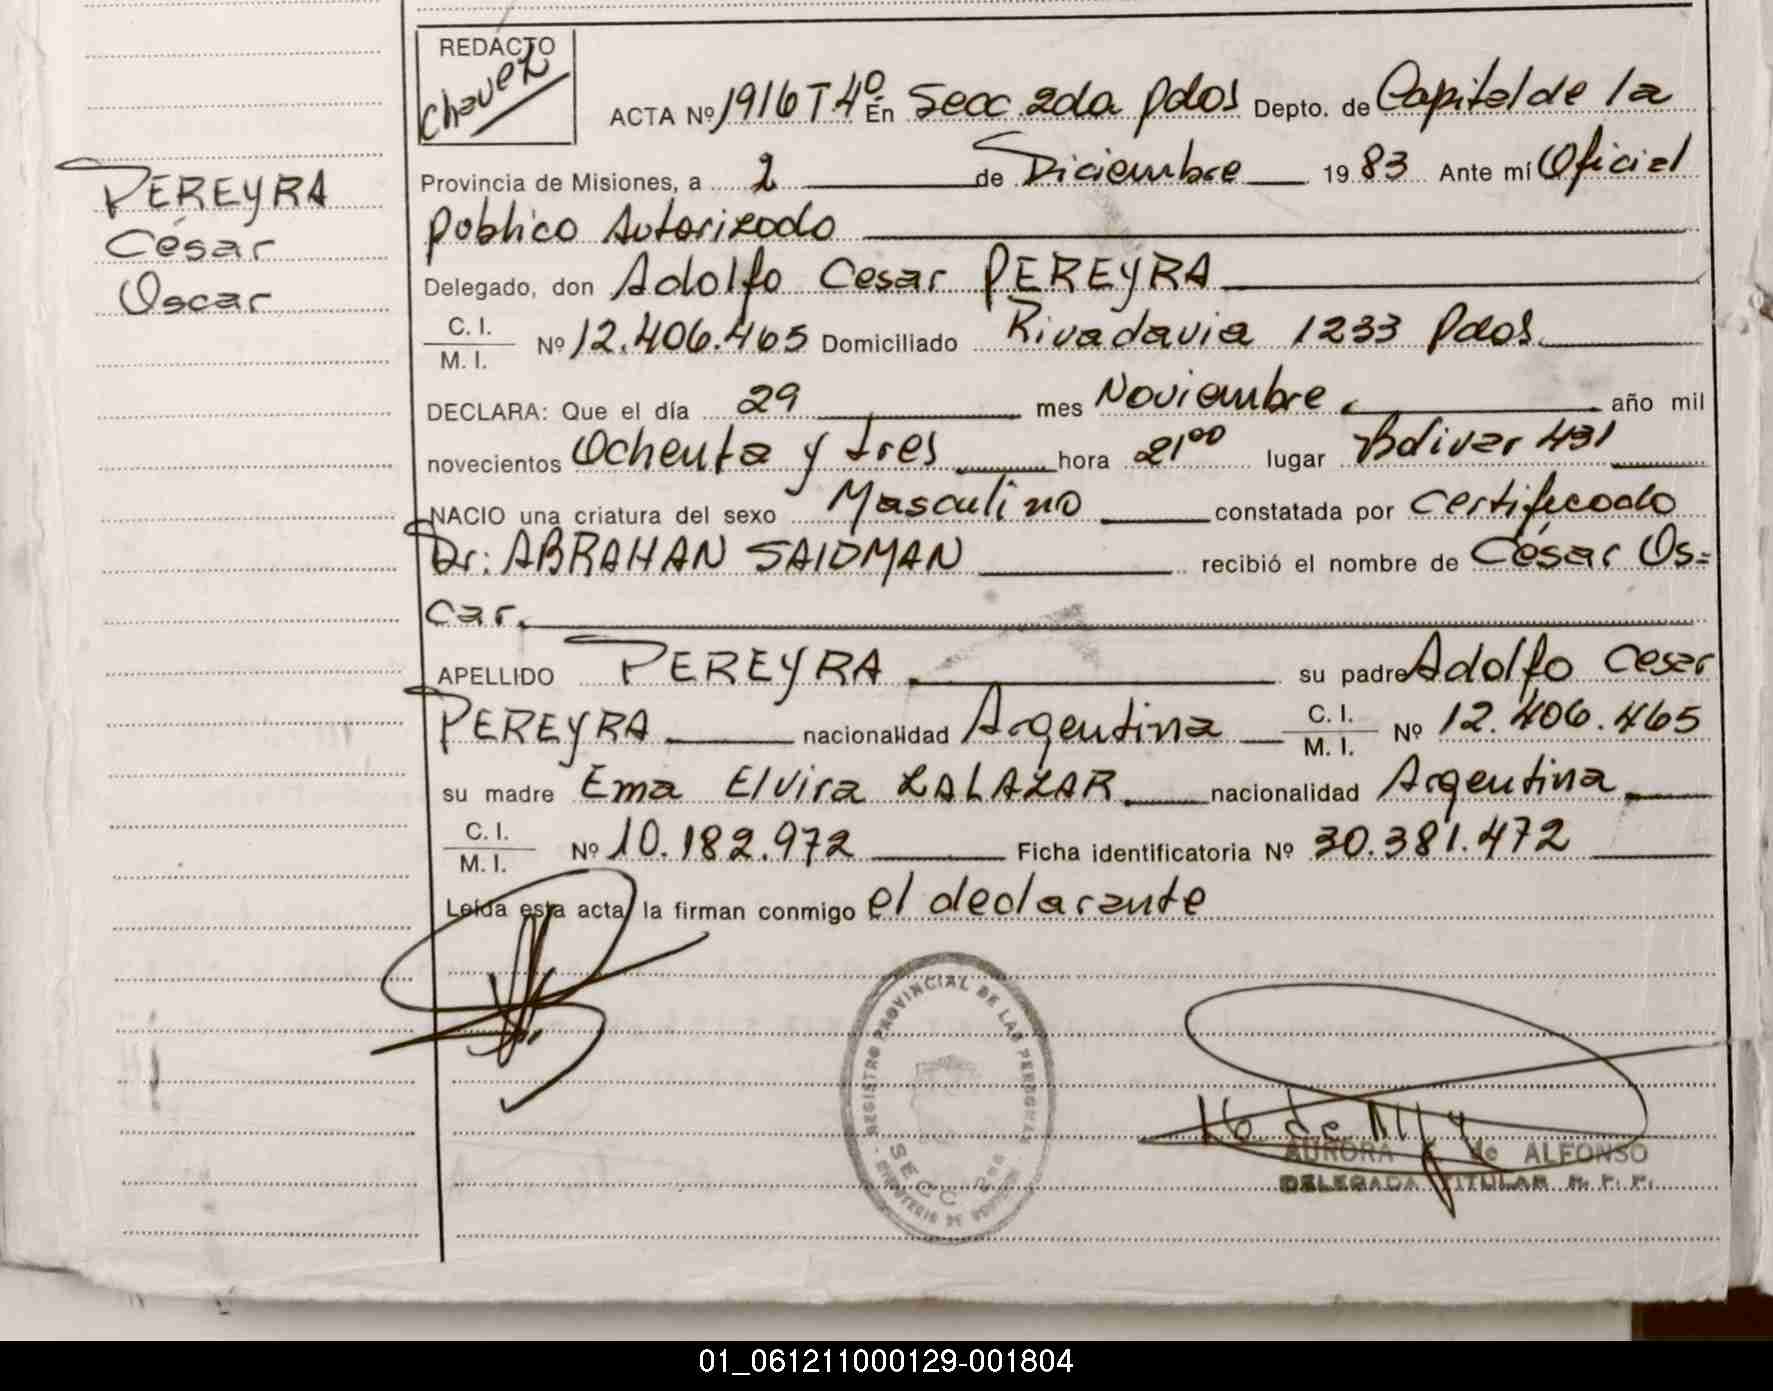 REDACTO
Chavez
ACTA Nº 1916 T 4º En Secc 2da Pdas Depto. de Capital de la
PEREYRA
César
Oscar
Provincia de Misiones, a 2 de Diciembre 1983 Ante mí Oficial
Público Autorizado
Delegado, don Adolfo Cesar PEREYRA
C. I.
M. I. Nº 12.406.465 Domiciliado Rivadavia 1233 Pdas
DECLARA: Que el día 29 mes Noviembre año mil
novecientos Ochenta y tres hora 21⁰⁰ lugar Bolivar 431
NACIO una criatura del sexo Masculino constatada por Certificado
Dr: ABRAHAN SAIDMAN recibió el nombre de César Os=
car.
APELLIDO PEREYRA su padre Adolfo Cesar
PEREYRA nacionalidad Argentina C. I. M. I. Nº 12.406.465
su madre Ema Elvira ZALAZAR nacionalidad Argentina
C. I.
M. I. Nº 10.182.972 Ficha identificatoria Nº 30.381.472
Leída esta acta, la firman conmigo el declarante
REGISTRO PROVINCIAL DE LAS PERSONAS
SECC 2da
AURORA de ALFONSO
DELEGADA TITULAR R. P. P.
01_061211000129-001804